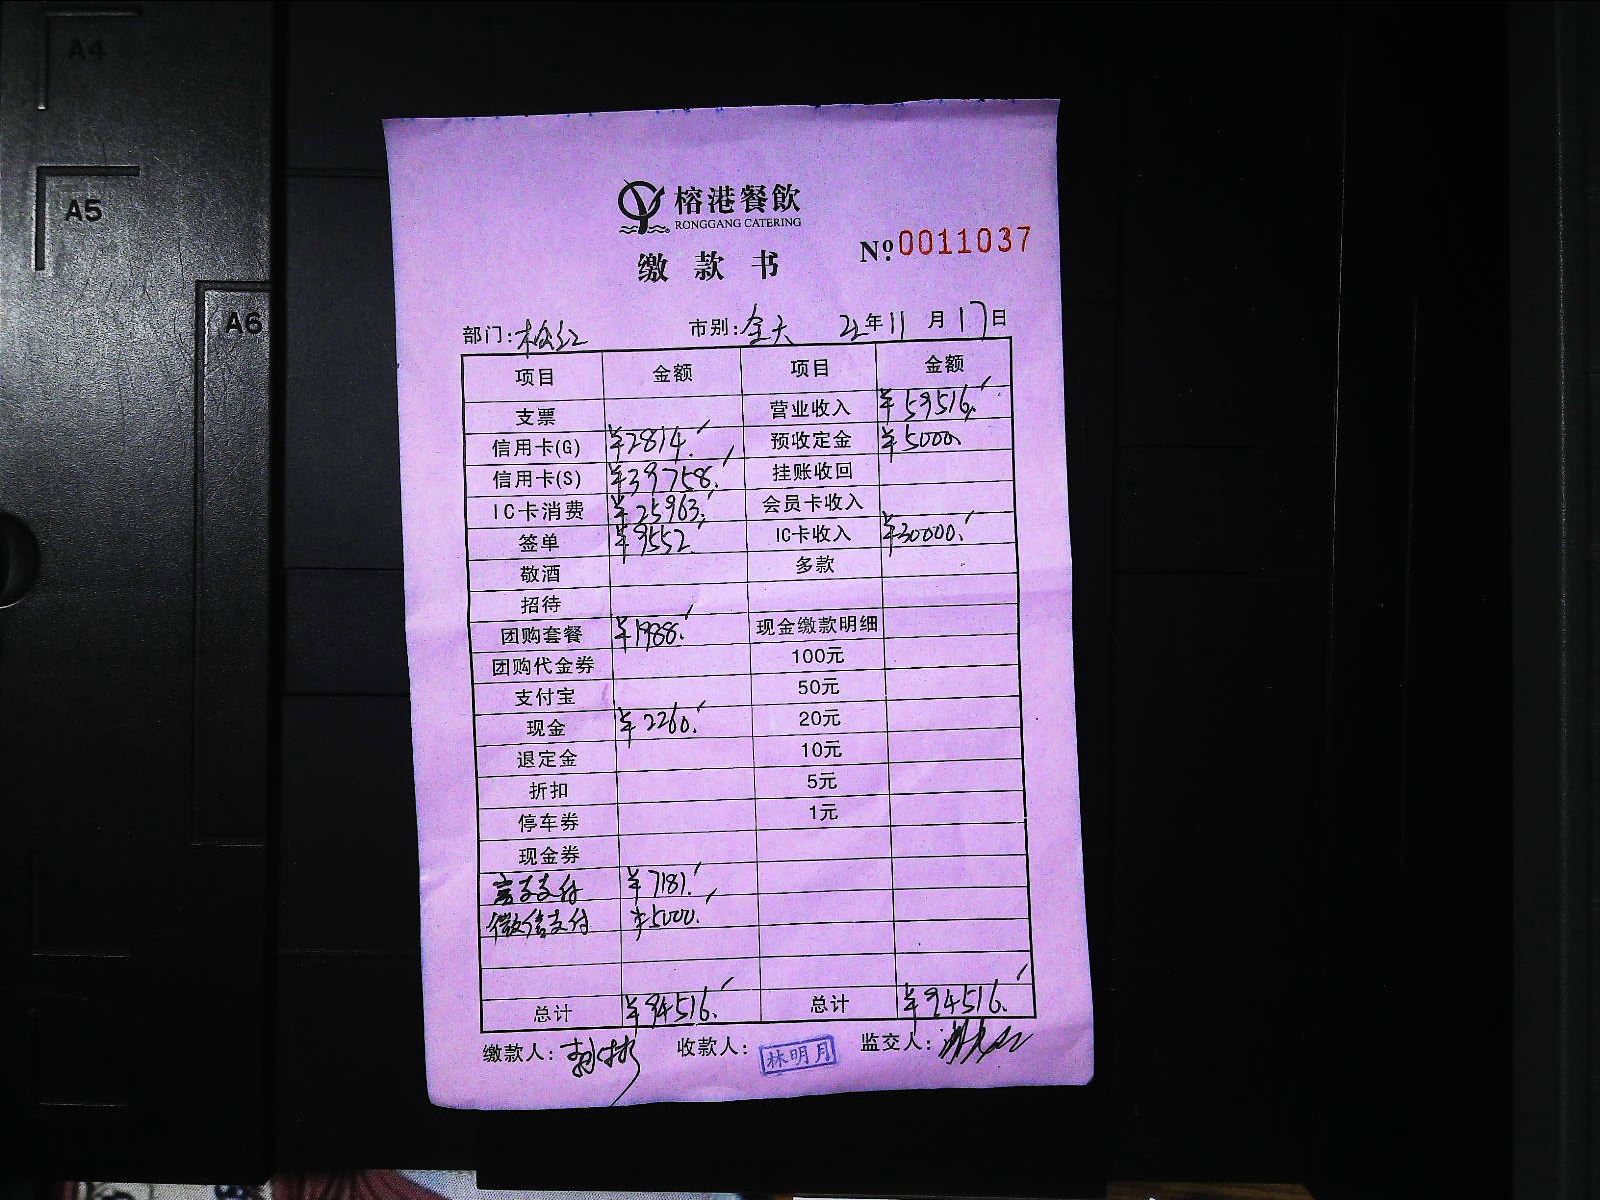 A4
A5
A6
榕港餐飲
RONGGANG CATERING
缴款书
Nº:0011037
部门: 市别:全天 22年11月17日
项目 金额 项目 金额
支票 营业收入 ¥59516.
信用卡(G) ¥2814. 预收定金 ¥5000.
信用卡(S) ¥39758. 挂账收回
IC卡消费 ¥25963. 会员卡收入
签单 ¥9552. IC卡收入 ¥30000.
敬酒 多款
招待
团购套餐 ¥1988. 现金缴款明细
团购代金券 100元
支付宝 50元
现金 ¥2260. 20元
退定金 10元
折扣 5元
停车券 1元
现金券
支付 ¥7181.
微信支付 ¥5000.
总计 ¥94516. 总计 ¥94516.
缴款人: 收款人:林明月 监交人: